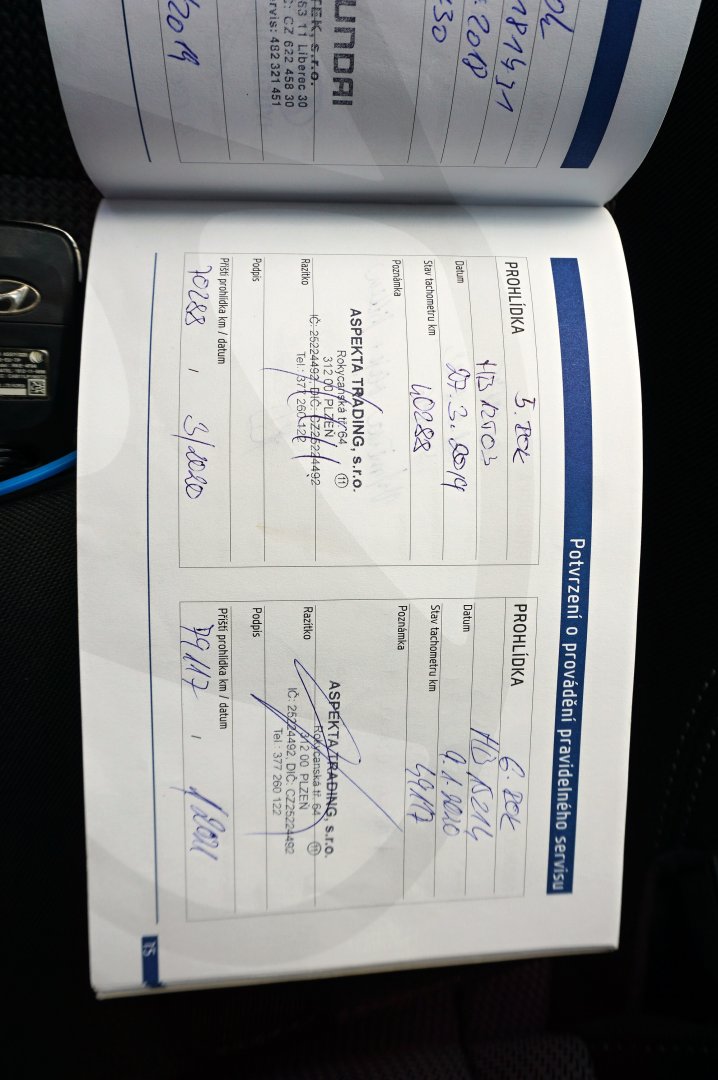 ok
1819431
.2018
30
UNDAI
TEK, s.r.o.
53 11 Liberec 30
C: CZ 622 458 30
ervis: 482 321 451
/2019
Potvrzení o provádění pravidelného servisu
PROHLÍDKA 5. ROK
HB 12T03
Datum 27. 3. 2019
Stav tachometru km 40288
Poznámka
ASPEKTA TRADING, s.r.o.
Rokycanská tř. 64
312 00 PLZEŇ 11
IČ: 25224492, DIČ: CZ25224492
Razítko Tel.: 377 260 122
Podpis
Příští prohlídka km / datum
70288 / 3/2020
PROHLÍDKA 6. ROK
HB 15214
Datum 9.1.2020
Stav tachometru km 49117
Poznámka
ASPEKTA TRADING, s.r.o.
Rokycanská tř. 64
312 00 PLZEŇ 11
Razítko IČ: 25224492, DIČ: CZ25224492
Tel.: 377 260 122
Podpis
Příští prohlídka km / datum
79117 / 1/2021
15